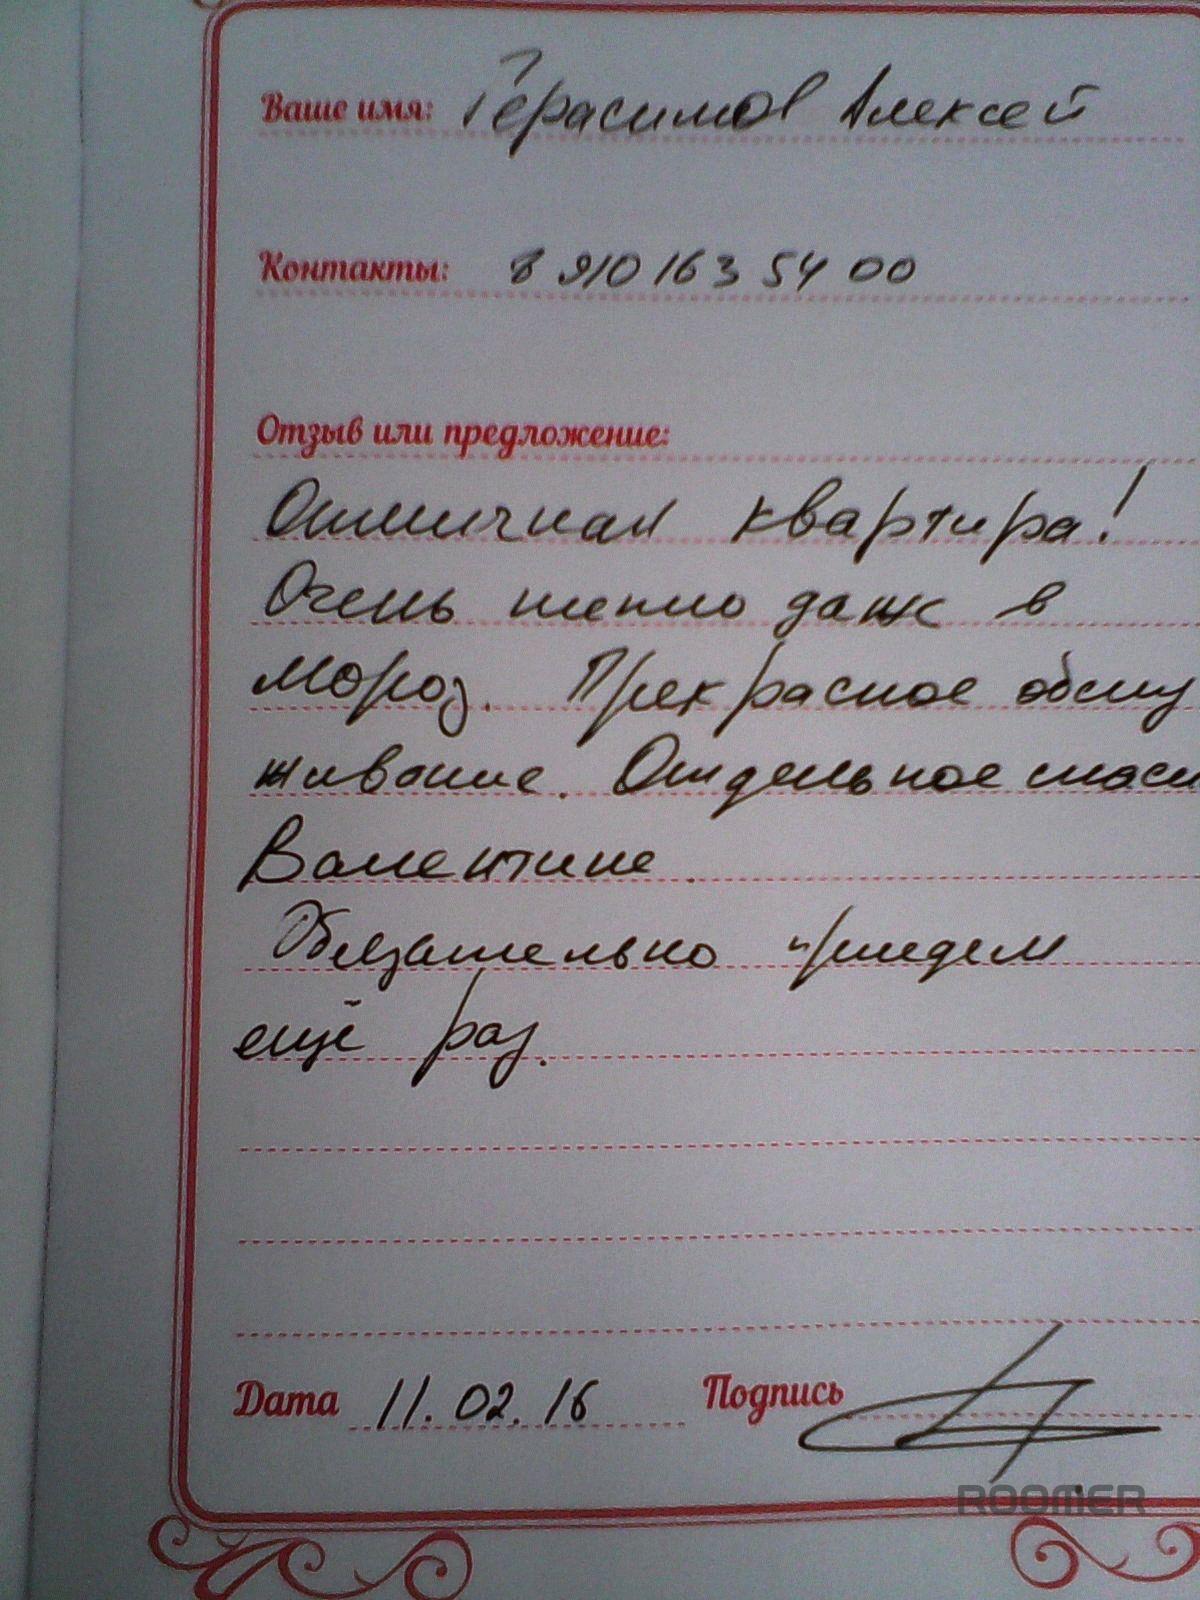 Ваше имя: Герасимов Алексей
Контакты: 8 910 163 54 00
Отзыв или предложение:
Отличная квартира!
Очень тепло даже в
мороз. Прекрасное обслу
живание. Отдельное спаси
Валентине.
Обязательно приедем
ещё раз.
Дата 11.02.16 Подпись
ROOMER